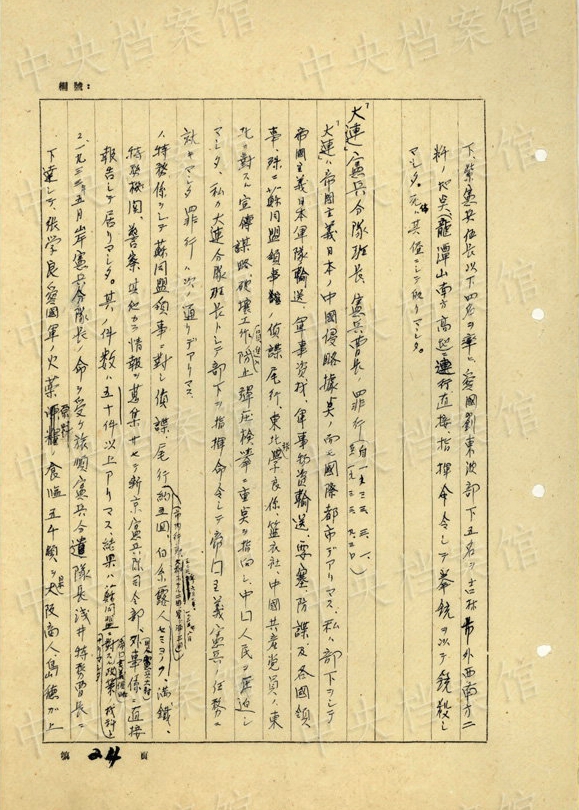 中央档案馆
欄號:
下、柴憲兵伍長以下四名ヲ率ヒ愛國劉東波部下五名ヲ吉林市外西南方ニ
料ノ地臭(龍潭山南方高地ニ連行直接指揮命令シテ拳銃ヲ以テ銃殺シ
マシタ。
大連憲兵分隊班長、憲兵曹長ノ罪行
大連ハ帝國主義日本ノ中國侵略據臭ノ而モ國際都市デアリマス、私ハ部下ヲシテ
帝國主義日本軍隊輸送、軍事資材、軍事物資輸送、要塞防諜及各國領
事、殊ニ蘇同盟領事館ノ偵諜尾行、東北張学良係、籃衣社、中國共産党員ノ東
北ニ對スル宣傳謀略、破壊工作防止彈圧検挙ニ重臭ヲ指向シ中口人民ヲ圧迫シ
マシタ、私ガ大連分隊班長トシテ部下ヲ指揮命令シテ帝口主義憲兵ノ任務ニ
就キマシタ罪行ハ次ノ通リデアリマス
1、特務係ヲシテ蘇同盟領事ニ對シ偵諜尾行約五回、白系露人セミヨノフ、満鐵、
特務機関、警察、其他カラ情報ヲ蒐集サセテ新京憲兵隊司令部、外事係ニ直接
報告シテ居リマシタ。其ノ件数ハ五十件以上アリマス結果ハ蘇同盟ニ對スル
2、一九三三年五月岸憲兵分隊長ノ命ヲ受ケ旅順憲兵分遣隊長浅井特務曹長ニ
下達シテ、張学良愛國軍ノ火薬食塩五千頓ヲ大阪商人、島徳ガ上
號 24 頁